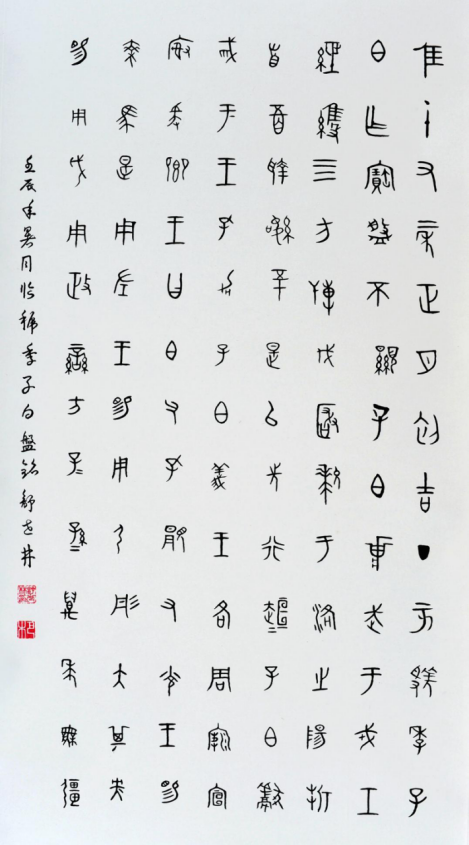 隹十又二年正月初吉丁亥虢季子
白乍寶盤不顯子白壯武于戎工
經維四方搏伐玁狁于洛之陽折
首五百執訊五十是以先行趄趄子白獻
馘于王王孔加子白義王各周廟宣
榭爰卿王曰白父孔顯又光王賜
乘馬是用左王賜用弓彤矢其央
賜用戉用政蠻方子子孫孫萬年無疆
壬辰年暑月臨虢季子白盤銘舒